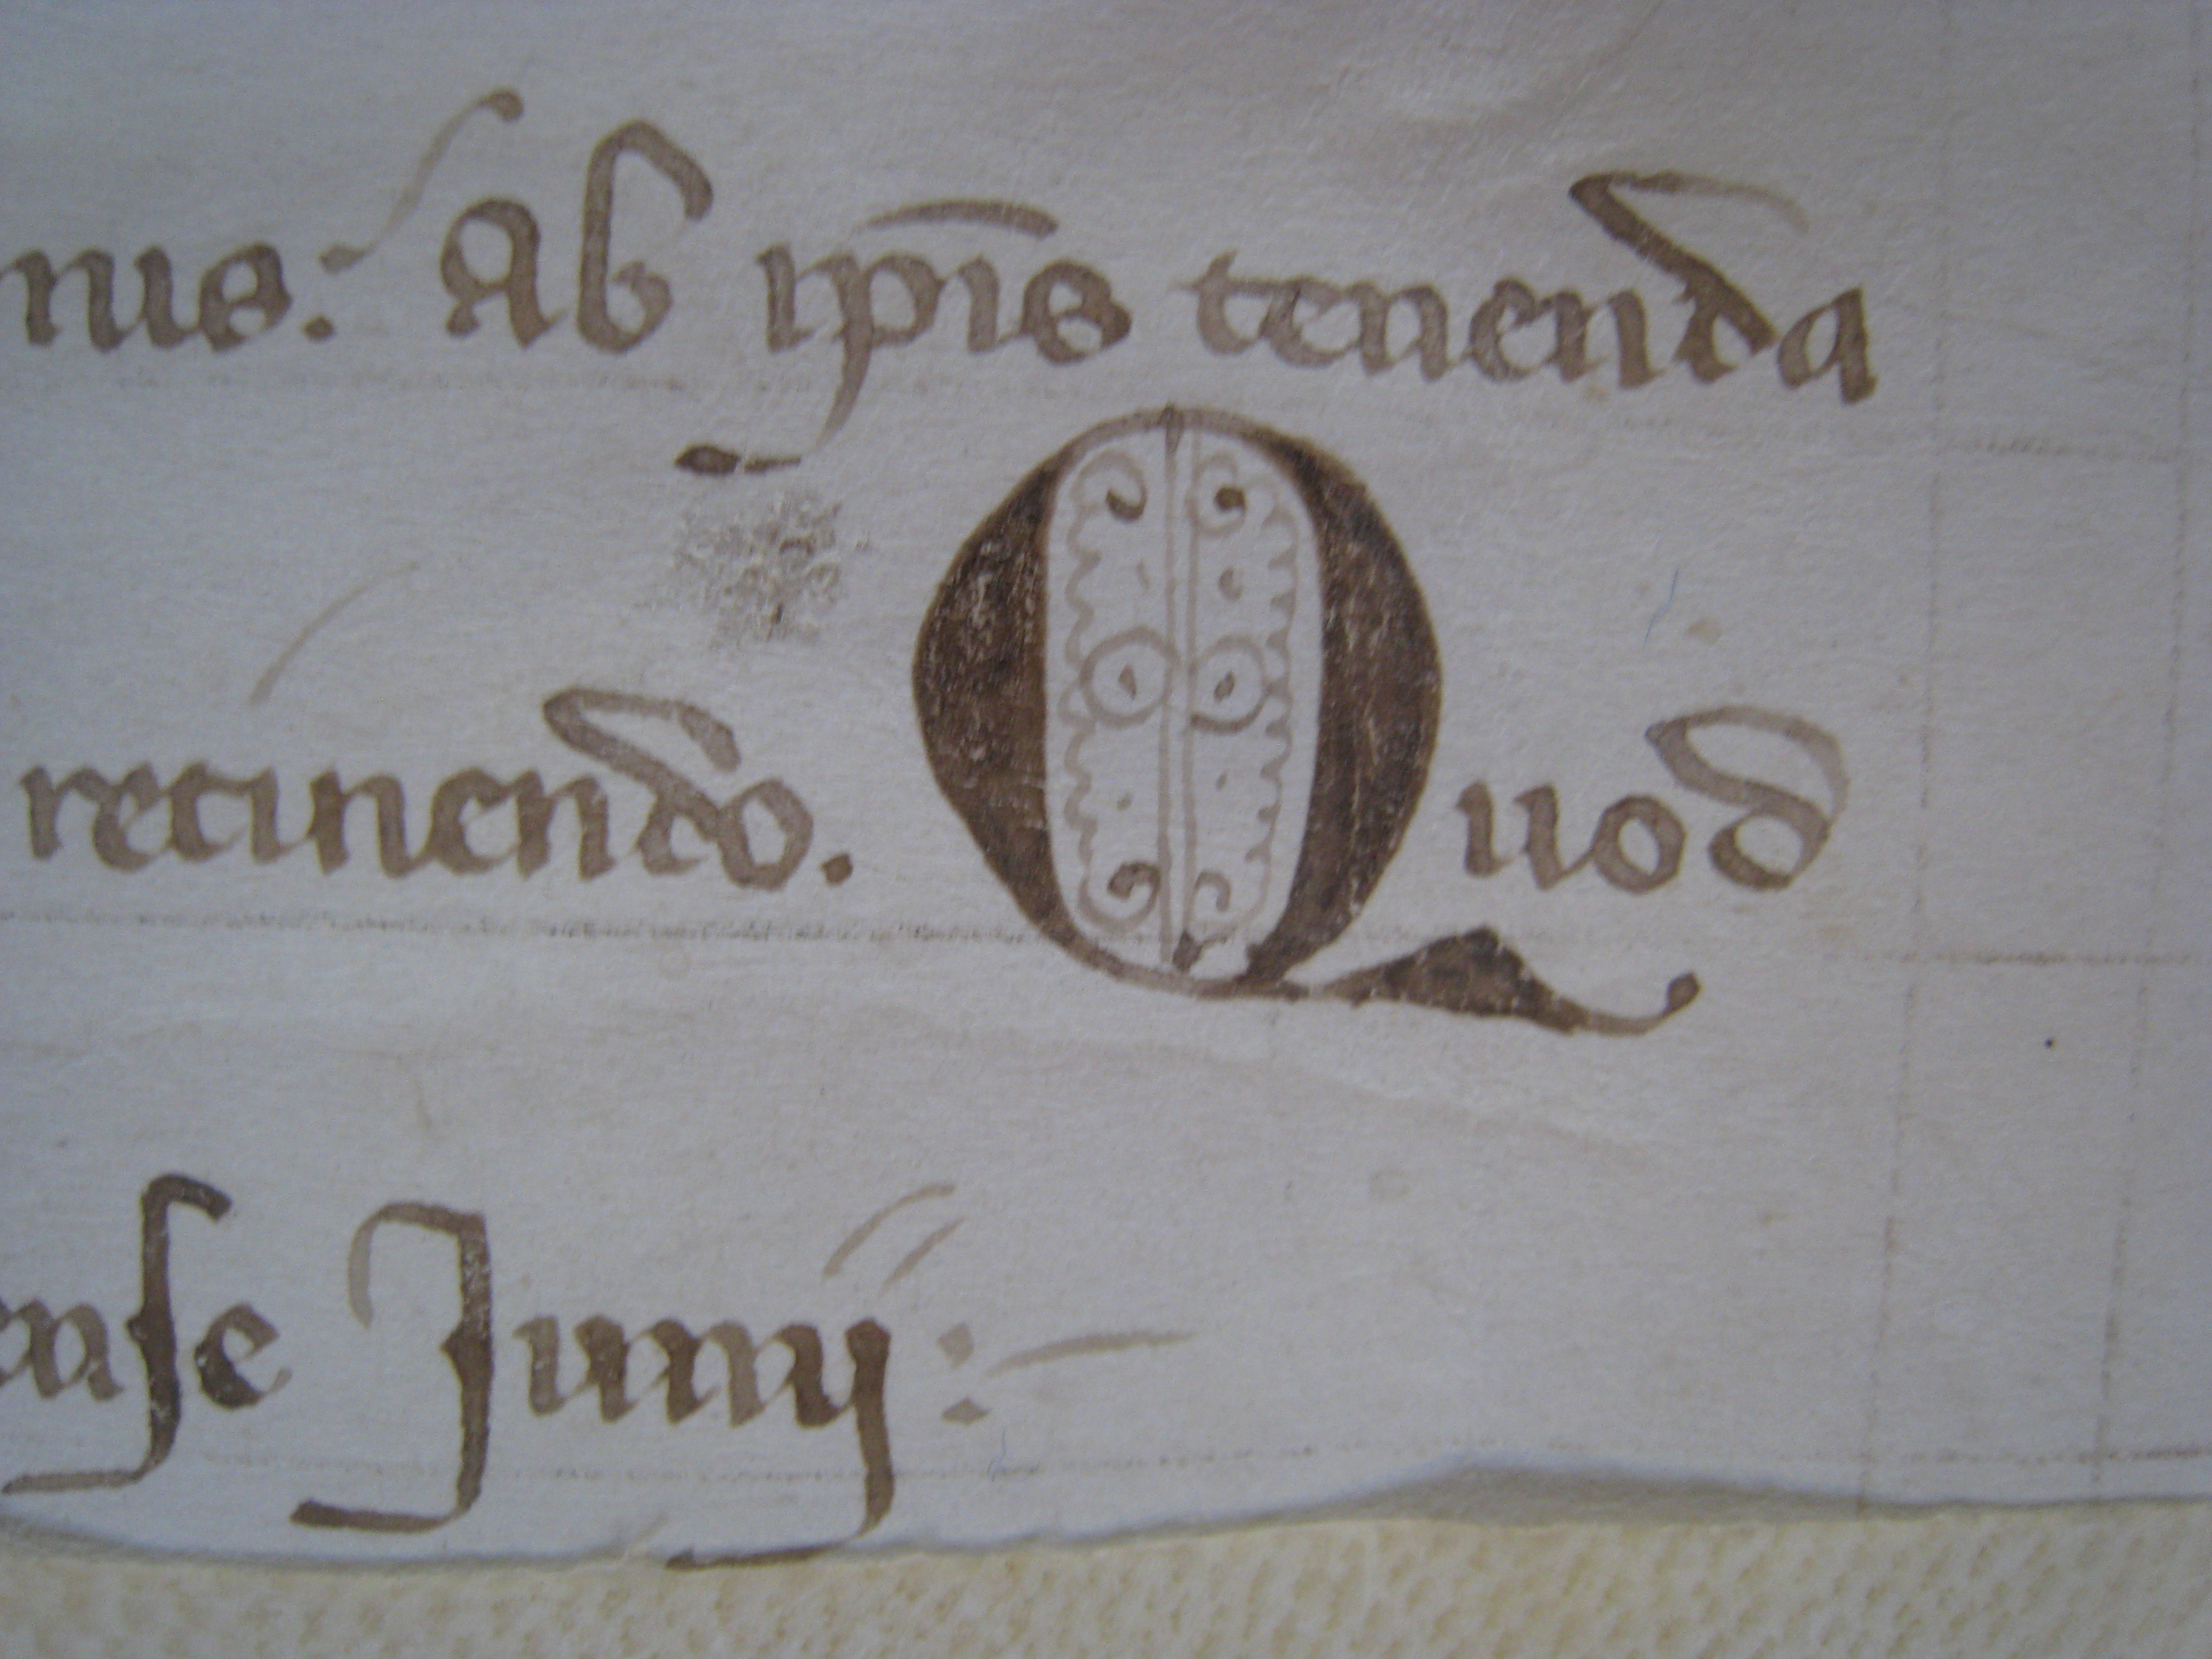 nis: Ab ip̄is tenenda
retinendo. Quod
ense Junij:-